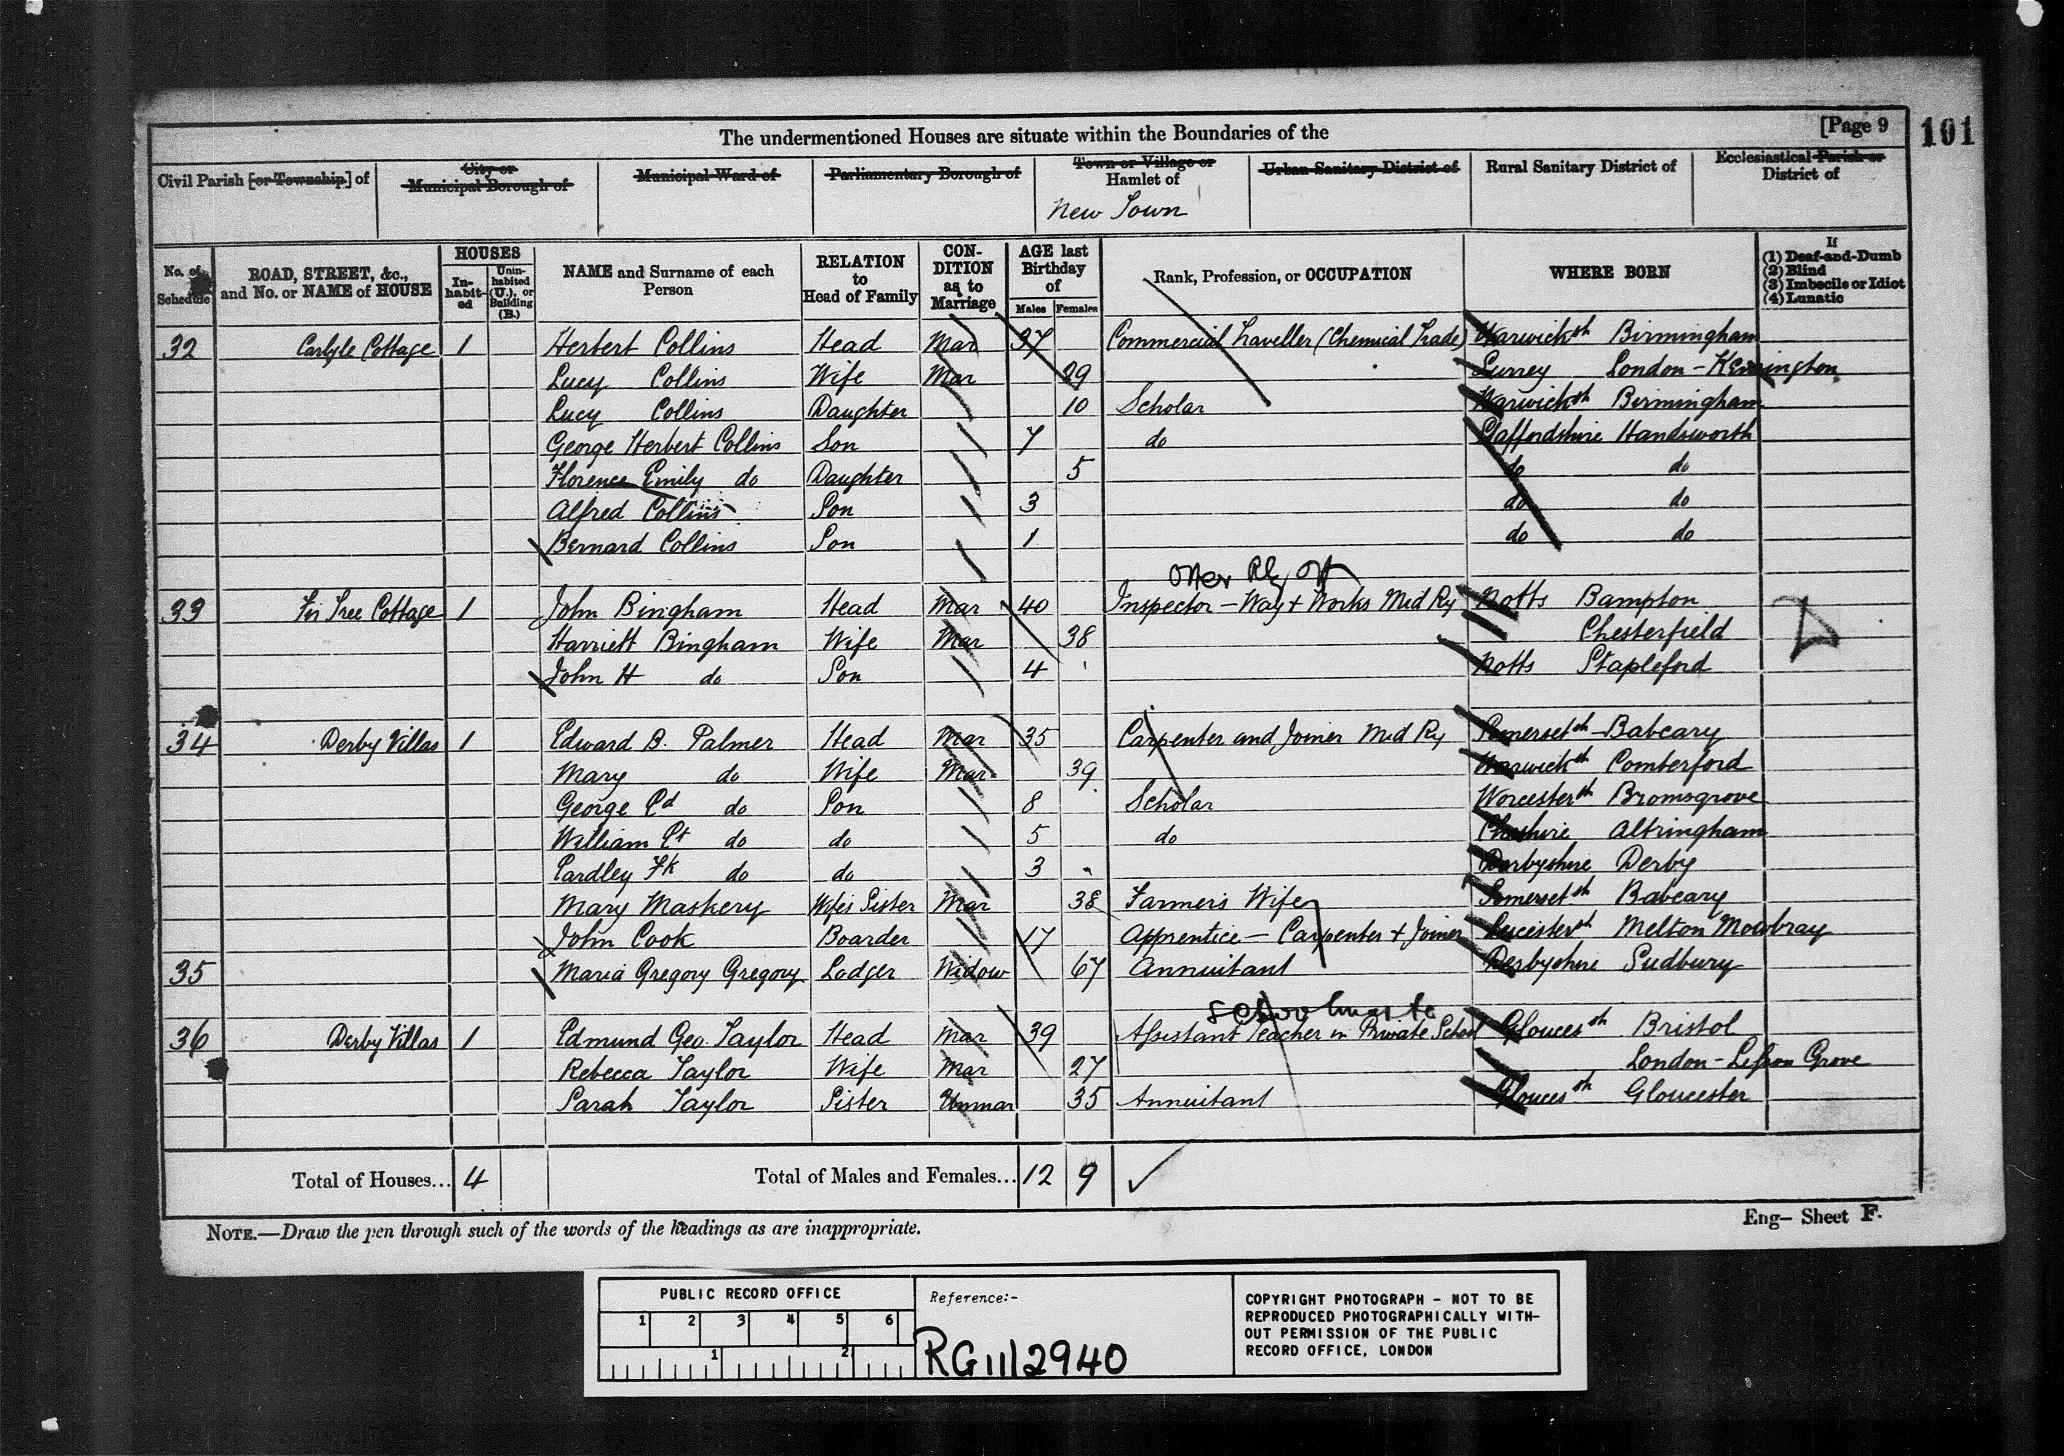 The undermentioned Houses are situate within the Boundaries of the [Page 9 101
Civil Parish [or Township] of City or Municipal Borough of Municipal Ward of Parliamentary Borough of Town or Village or Hamlet of Urban Sanitary District of Rural Sanitary District of Ecclesiastical Parish or District of
New Town
No. of Schedule ROAD, STREET, &c., and No. or NAME of HOUSE HOUSES Inhabited Uninhabited (U.), or Building (B.) NAME and Surname of each Person RELATION to Head of Family CONDITION as to Marriage AGE last Birthday of Males Females Rank, Profession, or OCCUPATION WHERE BORN If (1) Deaf-and-Dumb (2) Blind (3) Imbecile or Idiot (4) Lunatic
32 Carlyle Cottage 1 Herbert Collins Head Mar 37 Commercial Traveller (Chemical Trade) Warwicksh Birmingham
Lucy Collins Wife Mar 29 Surrey London - Kennington
Lucy Collins Daughter 10 Scholar Warwicksh Birmingham
George Herbert Collins Son 7 do Staffordshire Handsworth
Florence Emily do Daughter 5 do do
Alfred Collins Son 3 do do
Bernard Collins Son 1 do do
33 Fir Tree Cottage 1 John Bingham Head Mar 40 Inspector - Way + Works Mid Ry Notts Bampton
Harriett Bingham Wife Mar 38 Chesterfield
John H do Son 4 Notts Stapleford
34 Derby Villas 1 Edward B. Palmer Head Mar 35 Carpenter and Joiner Mid Ry Somersetsh Babcary
Mary do Wife Mar 39 Warwicksh Comberford
George Ed do Son 8 Scholar Worcestersh Bromsgrove
William Et do do 5 do Cheshire Altringham
Eardley Fk do do 3 Derbyshire Derby
Mary Maskery Wife's Sister Mar 38 Farmers Wife Somersetsh Babcary
John Cook Boarder 17 Apprentice - Carpenter + Joiner Leicestersh Melton Mowbray
35 Maria Gregory Gregory Lodger Widow 67 Annuitant Derbyshire Sudbury
36 Derby Villas 1 Edmund Geo. Taylor Head Mar 39 Assistant Teacher in Private School Gloucessh Bristol
Rebecca Taylor Wife Mar 27 London - Lisson Grove
Sarah Taylor Sister Unmar 35 Annuitant Gloucessh Gloucester
Total of Houses... 4 Total of Males and Females... 12 9
NOTE.—Draw the pen through such of the words of the headings as are inappropriate.
Eng— Sheet F.
PUBLIC RECORD OFFICE
1 2 3 4 5 6
1 2
Reference:-
RG 11/2940
COPYRIGHT PHOTOGRAPH - NOT TO BE
REPRODUCED PHOTOGRAPHICALLY WITH-
OUT PERMISSION OF THE PUBLIC
RECORD OFFICE, LONDON